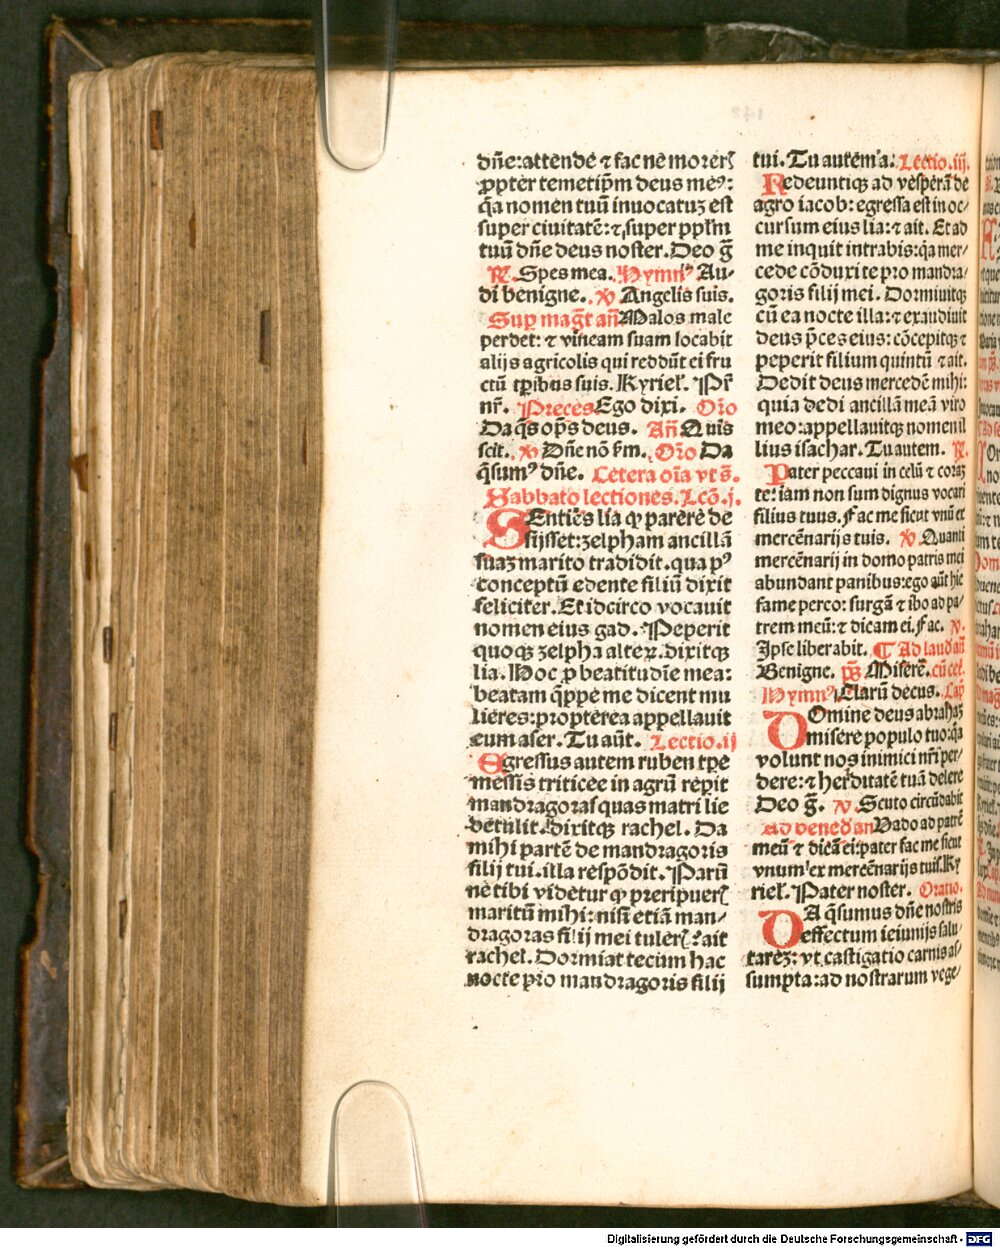 dñe:attende ⁊ fac ne morerꝭ
ꝓpter temetip̃m deus meꝰ:
q̃a nomen tuũ inuocatuꝫ est
super ciuitatẽ:⁊ super pplm̃
tuũ dñe deus noster. Deo g̃
℟. Spes mea. Hymnꝰ Au-
di benigne. ℣ Angelis suis.
Suꝑ mag̃t añ Malos male
perdet: ⁊ vineam suam locabit
alijs agricolis qui reddũt ei fru
ctũ tp̃ibus suis. Kyriel̃. Pr̃
nr̃. Preces Ego dixi. Oro
Da q̃s op̃s deus. Añ Quis
scit. ℣ Dñe nõ s̃m. Oro Da
q̃sumꝰ dñe. Cetera oĩa vt s̃.
Sabbato lectiones. Lcõ. j.
SEntiẽs lia ꝙ parere de
sijsset: zelpham ancillã
suaꝫ marito tradidit. qua pꝰ
conceptũ edente filiũ dixit
feliciter. Et idcirco vocauit
nomen eius gad. Peperit
quoqꝫ zelpha alteꝝ. dixitqꝫ
lia. Hoc ꝓ beatitudĩe mea:
beatam q̃ppe me dicent mu
lieres: propterea appellauit
eum aser. Tu aũt. Lectio. ij
Egressus autem ruben tp̃e
messis triticee in agrũ reꝑit
mandragoras quas matri lie
detulit. dixitqꝫ rachel. Da
mihi partẽ de mandragoris
filij tui. illa respõdit. Parũ
ne tibi videtur ꝙ preripuerꝭ
maritũ mihi: nisi etiã man-
dragoras filij mei tulerꝭ? ait
rachel. Dormiat tecum hac
nocte pro mandragoris filij
tui. Tu autẽ m̃a: Lectio. iij.
Redeuntiqꝫ ad vesperã de
agro iacob: egressa est in oc/
cursum eius lia: ⁊ ait. Et ad
me inquit intrabis: q̃a mer-
cede cõduxi te pro mandra-
goris filij mei. Dormiuitqꝫ
cũ ea nocte illa: ⁊ exaudiuit
deus p̃ces eius: cõcepitqꝫ ⁊
peperit filium quintũ ⁊ ait.
Dedit deus mercedẽ mihi:
quia dedi ancillã meã viro
meo: appellauitqꝫ nomen il
lius isachar. Tu autem. ℟.
Pater peccaui in celũ ⁊ coraꝫ
te: iam non sum dignus vocari
filius tuus. Fac me sicut vnũ ex
mercẽnarijs tuis. ℣ Quanti
mercẽnarij in domo patris mei
abundant panibus: ego aũt hic
fame perco: surgã ⁊ ibo ad pa/
trem meũ: ⁊ dicam ei. Fac. ℣.
Ipse liberabit. ¶ Ad laud añ
Benigne. p̃s Miserẽ. cũ cet̃.
Hymnꝰ Clarũ decus. Cap̃
DOmine deus abrahaꝫ
misere populo tuo: q̃a
volunt nos inimici nr̃i per/
dere: ⁊ her̃ditatẽ tuã delere
Deo g̃. ℣. Scuto circũdabit
Ad bened an Vado ad patrẽ
meũ ⁊ dicã ei: pater fac me sicut
vnum ex mercẽnarijs tuis. Ky
riel̃. Pater noster. Oratio.
DA q̃sumus dñe nostris
effectum ieiunijs salu/
tareꝫ: vt castigatio carnis as/
sumpta: ad nostrarum vege/
Digitalisierung gefördert durch die Deutsche Forschungsgemeinschaft - DFG